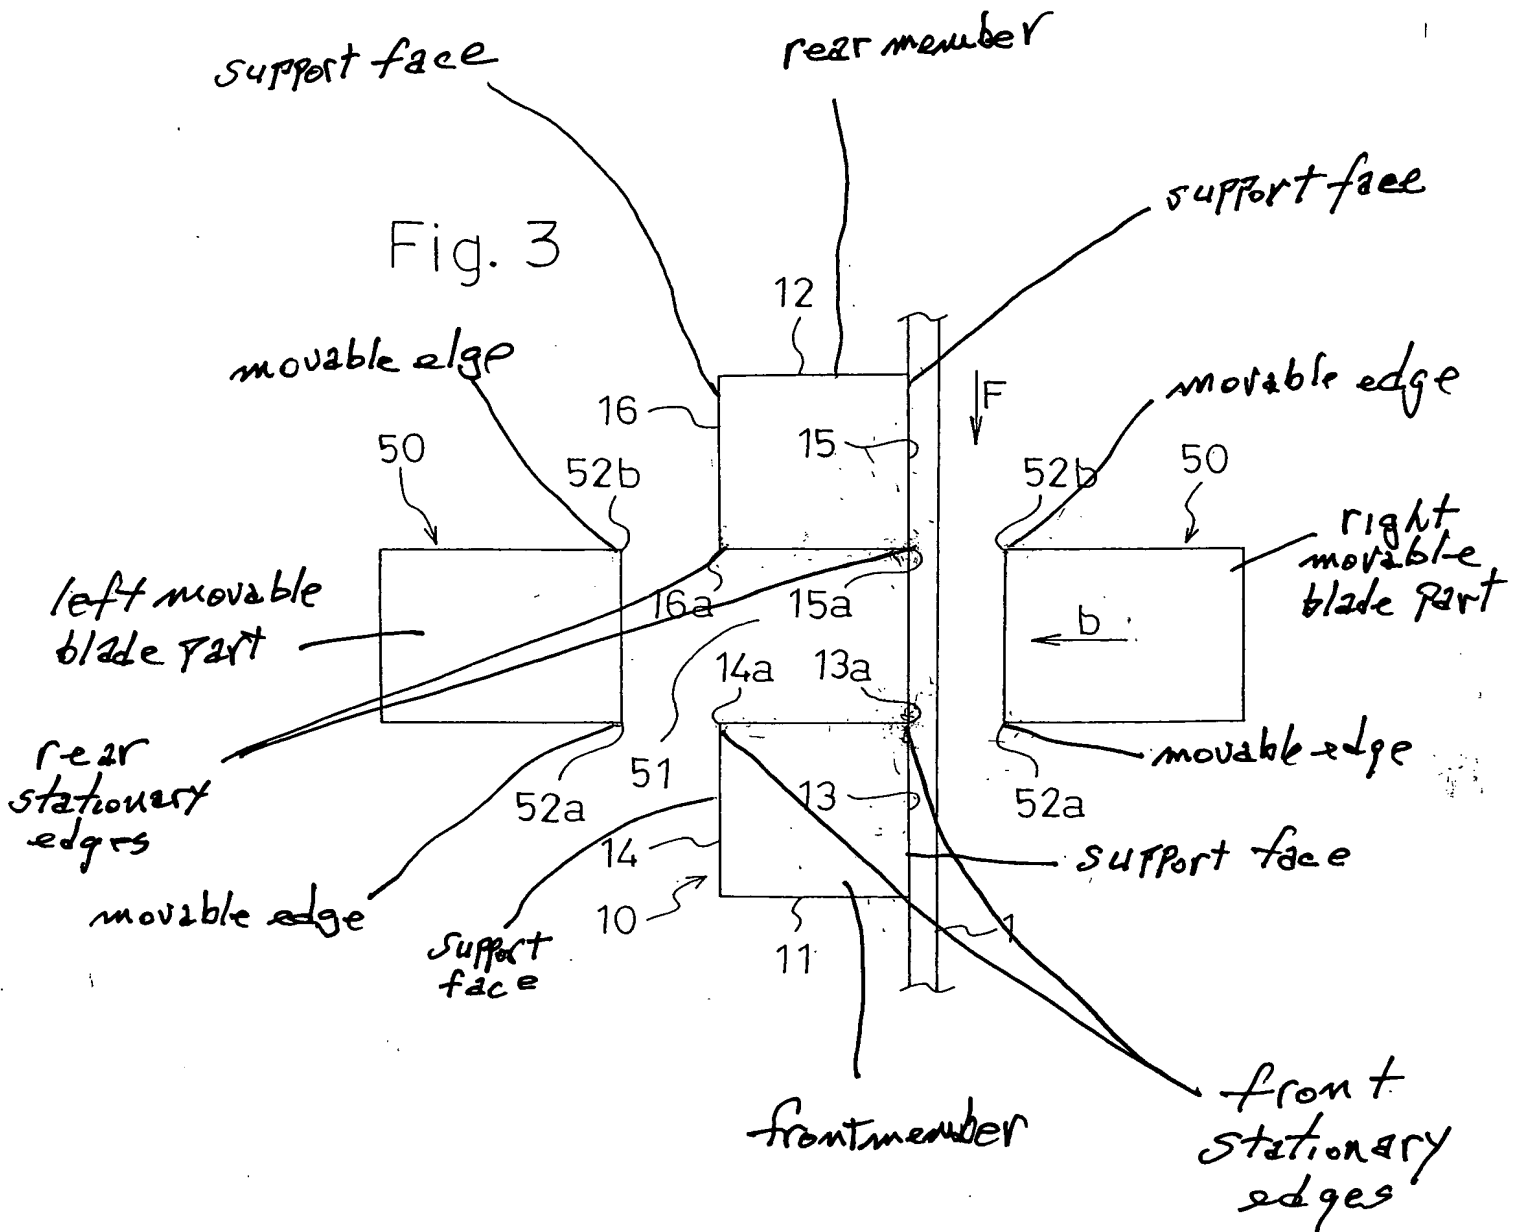 rear member
support face
support face
Fig. 3
12
movable elge
movable edge
16
F
15
50
52b
52b
50
right
movable
blade part
left movable
blade part
16a
15a
b
14a
13a
rear
stationary
edges
51
movable edge
52a
13
52a
14
support face
movable edge
10
support
face
11
1
front member
front
stationary
edges